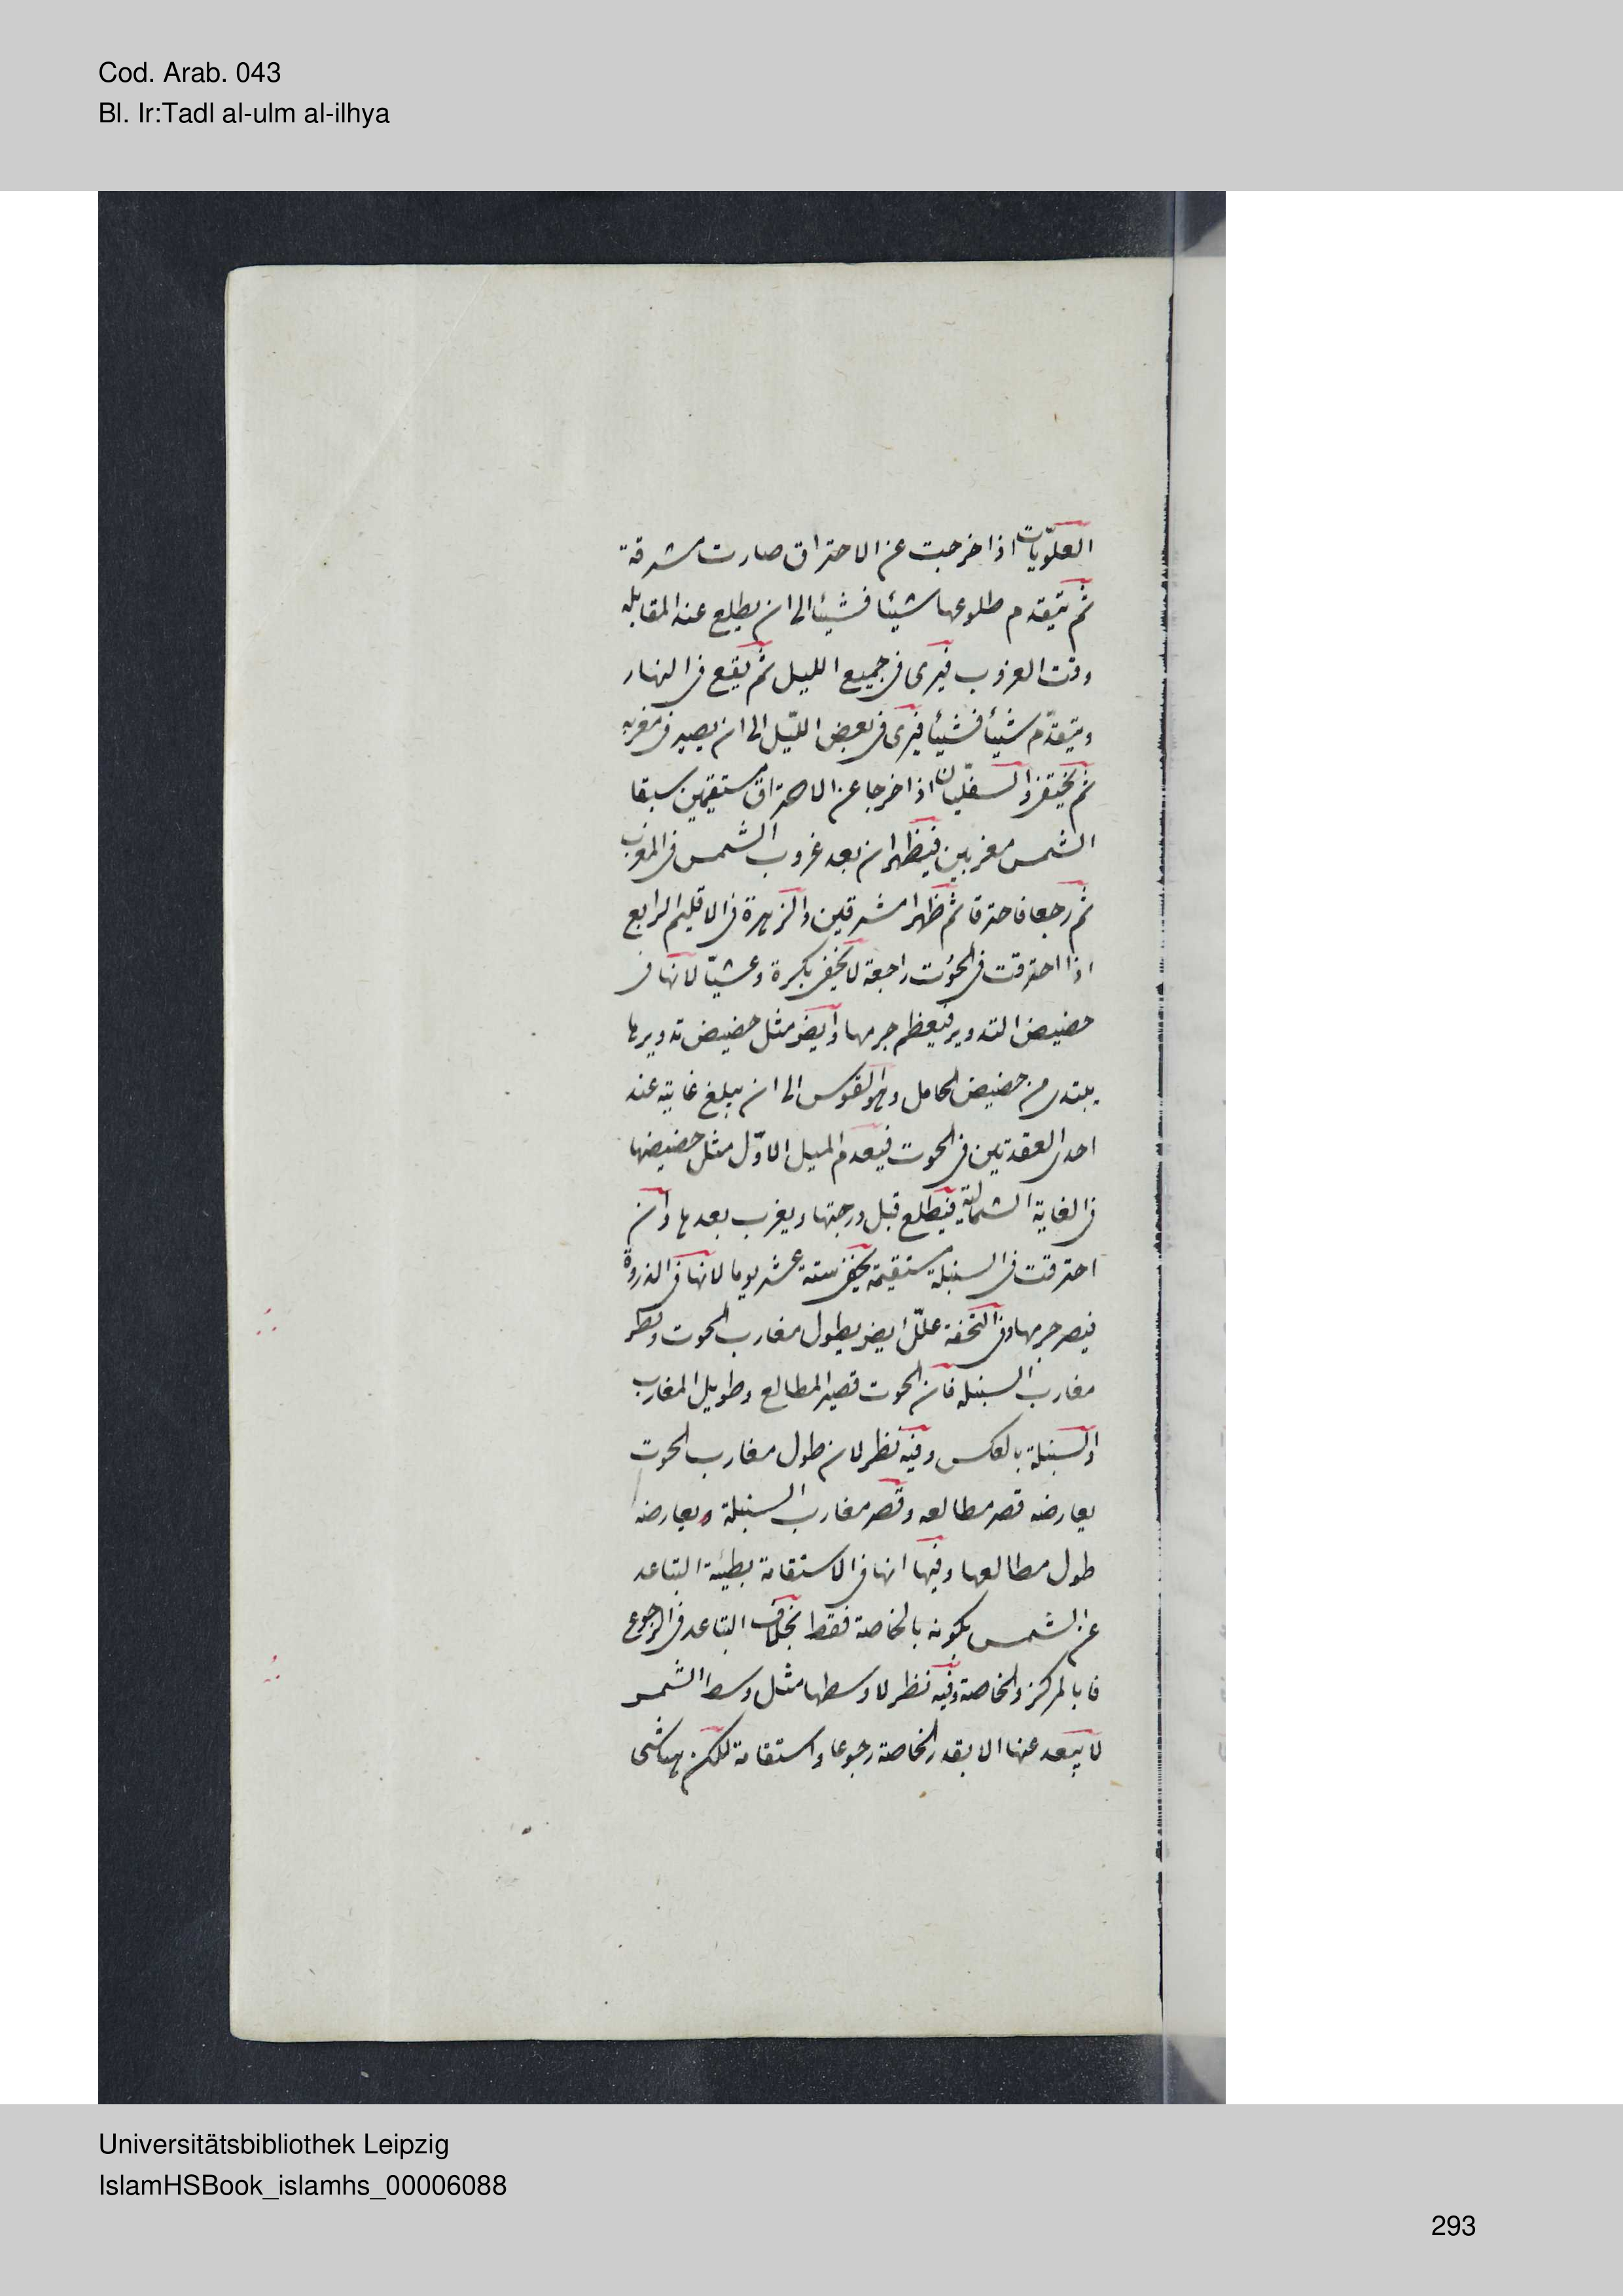 Cod. Arab. 043
Bl. Ir:Tadl al-ulm al-ilhya
العلويّات اذا خرجت عن الاحتراق صارت مشرقة
ثم يتقدم طلوعها شيئا فشيئا الى ان يطلع عند المقابلة
وقت الغروب فيرى فى جميع الليل ثم يقع فى النهار
ويتقدّم شيئا فشيئا فيرى فى بعض الليل الى ان يصير فى مغربه
ثم يختفى والسفليان اذا خرجا عن الاحتراق مستقيمين سبقا
الشمس مغربين فيظهران بعد غروب الشمس فى المغرب
ثم رجعا فاحترقا ثم ظهرا مشرقين والزهرة فى الاقليم الرابع
اذا احترقت فى الحوت راجعة لا تخفى بكرة وعشيّا لانها فى
حضيض التدوير فيعظم جرمها وايض مثل حضيض تدويرها
يبتدى من حضيض الحامل وهو القوس الى ان يبلغ غايته عند
احدى العقدتين فى الحوت فيعدم الميل الاوّل مثل حضيضها
فى الغاية الشمالية فيطلع قبل درجتها ويغرب بعدها وان
احترقت فى السنبلة مستقيمة يخفى ستة عشر يوما لانها فى الذروة
فيصغر جرمها وفى التحفة علّل ايض بطول مغارب الحوت وقصر
مغارب السنبلة فان الحوت قصير المطالع وطويل المغارب
والسنبلة بالعكس وفيه نظر لان طول مغارب الحوت
يعارضه قصر مطالعه وقصر مغارب السنبلة ويعارضه
طول مطالعها وفيها انها فى الاستقامة بطيئة التباعد
عن الشمس لكونه بالخاصة فقط بخلاف التباعد فى الرجوع
فا بالمركز والخاصة وفيه نظر لا وسطها مثل وسط الشمس
لا يبعد عنها الا بقدر الخاصة رجوعا واستقامة لكن هنا شى
Universitätsbibliothek Leipzig
IslamHSBook_islamhs_00006088
293